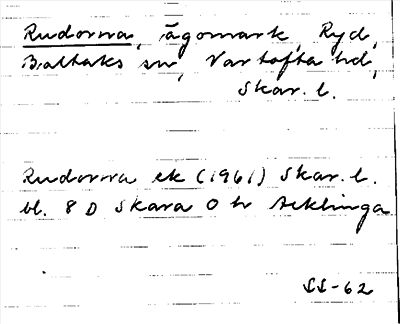 Rudorna, ägomark, Ryd,
Baltaks sn, Vartofta hd,
Skar. l.
Rudorna ek (1961) Skar. l.
bl. 8 D Skara O br Acklinga
SS-62